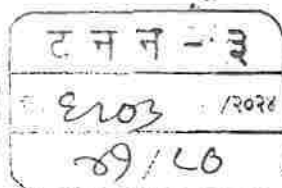 ट न न - ३
६८०३ /२०२४
४१/८०